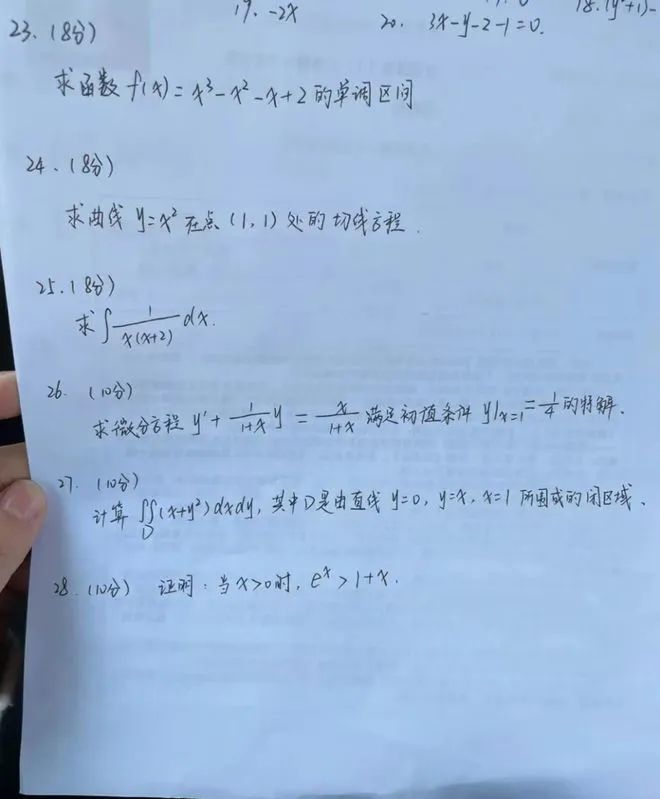 19. -2x
20. 3x-y-z-1=0.
23. (8分)
求函数 f(x)=x³-x²-x+2 的单调区间
24. (8分)
求曲线 y=x² 在点 (1,1) 处的切线方程.
25. (8分)
求 ∫ 1/(x(x+2)) dx.
26. (10分)
求微分方程 y'+1/(1+x) y = x/(1+x) 满足初值条件 y|x=1 = 1/4 的特解.
27. (10分)
计算 ∬D (x+y²)dxdy, 其中D是由直线 y=0, y=x, x=1 所围成的闭区域.
28. (10分) 证明: 当 x>0 时, eˣ > 1+x.